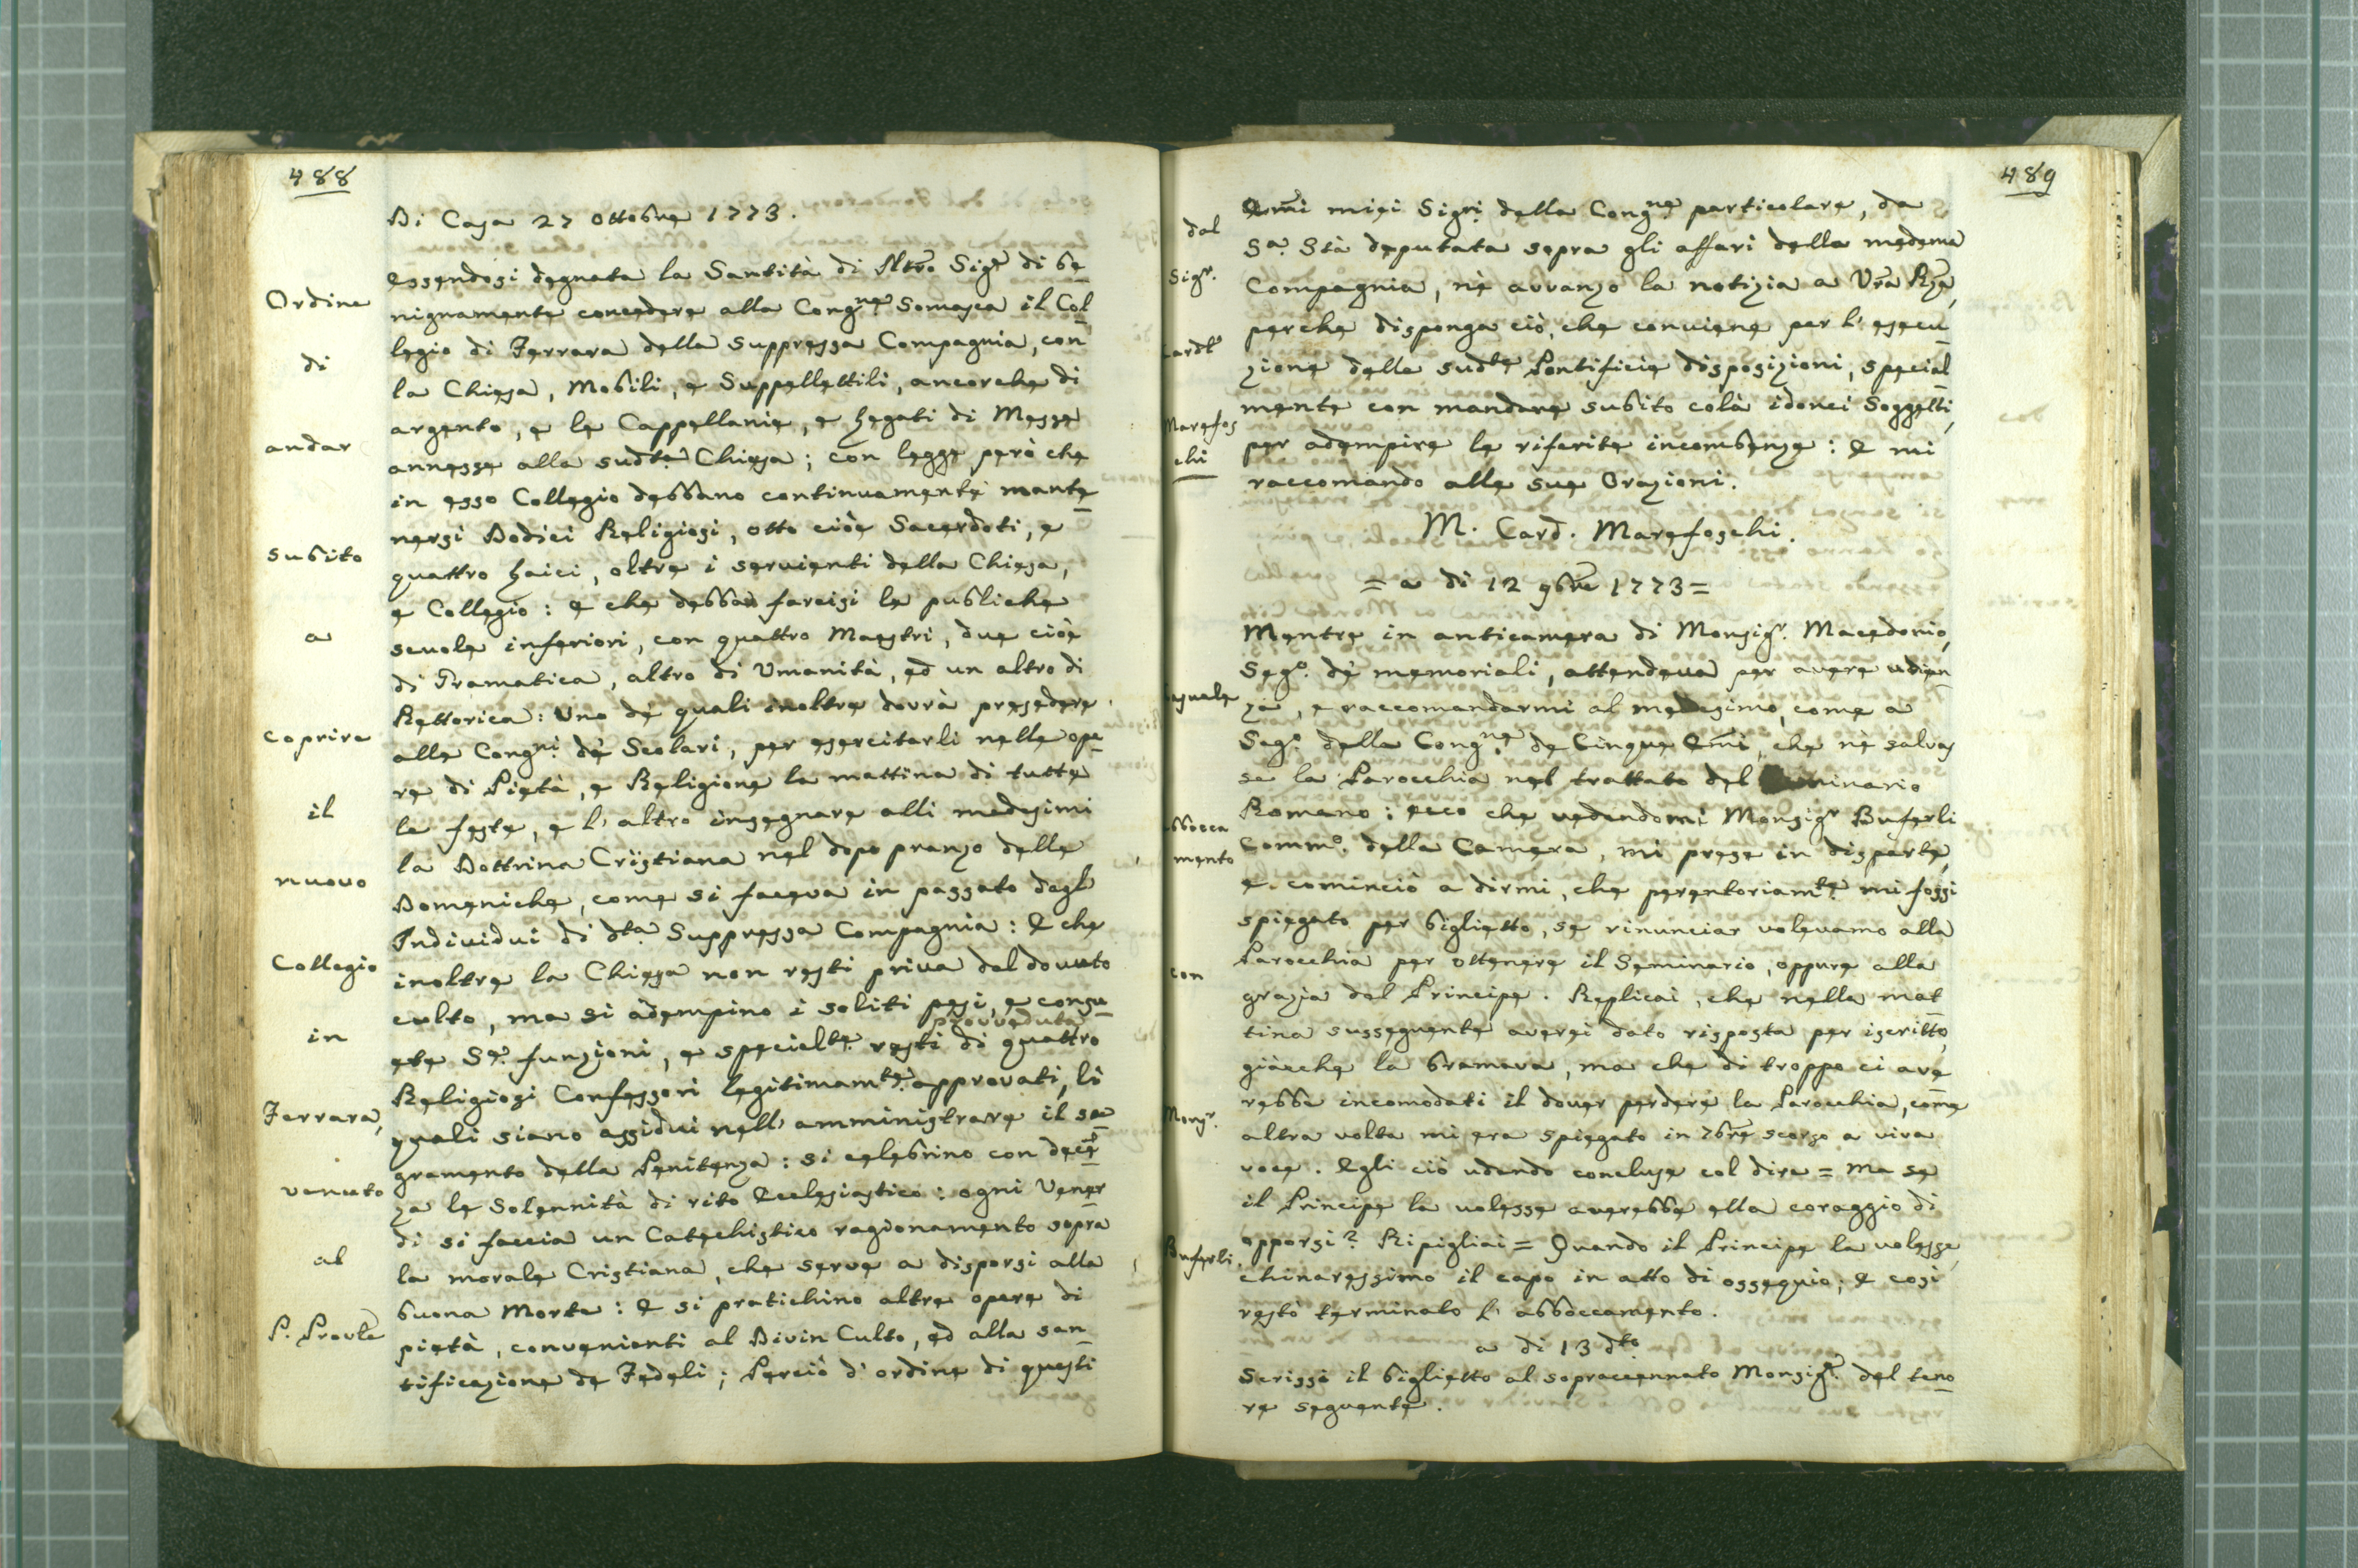 488
Di Casa 27 Ottobre 1773.
Essendosi degnata la Santità di Nrõ Sigrẽ di be
nignamente concedere alla Congne Somasca il Col
legio di Ferrara della suppressa Compagnia, con
la Chiesa, Mobili, e Suppellettili, ancorche di
argento, e le Cappellanie, e Legati di Messe
annesse alla sudta Chiesa; con legge però che
in esso Collegio debbano continuamente mante
nersi Dodici Religiosi, otto cioè Sacerdoti, e
quattro Laici, oltre i servienti della Chiesa,
e Collegio: e che debba farcisi le publiche
scuole inferiori, con quattro Maestri, due cioè
di Gramatica, altro di Umanità, ed un altro di
Rettorica: Uno dè quali inoltre dovrà presedere
alle Congni dè Scolari, per esercitarli nelle ope
re di Pietà, e Religione la mattina di tutte
le feste, e l'altro insegnare alli medesimi
la Dottrina Cristiana nel dopo pranzo delle
Domeniche, come si faceva in passato dagl'
Individui di dta Suppressa Compagnia: E che
inoltre la Chiesa non resti priva del dovuto
culto, ma si adempino i soliti pesi, e consu
provveduta
ete Se. funzioni, e specialte. resti di quattro
Religiosi Confessori legitimamte approvati, li
quali siano assidui nell' amministrare il sa
gramento della Penitenza: si celebrino con decẽ
za le Solennità di rito Ecclesiastico: ogni Vener
di si faccia un Catechistico ragionamento sopra
la morale Cristiana, che serve a disporsi alla
buona Morte: E si pratichino altre opere di
pietà, convenienti al Divin Culto, ed alla san
tificazione de Fedeli; Perciò d'ordine di questi
Ordine
di
andar
subito
a
coprire
il
nuovo
Collegio
in
Ferrara,
venuto
al
P. Provle
489
Emĩ miei Sigri della Congne particolare, da
Sa. Stà deputata sopra gli affari della medema
Compagnia, nè avvanzo la notizia a Vrã Rzã,
perche disponga ciò, che conviene per l'esecu
zione delle sudte Pontificie disposizioni, special
mente con mandare subito colà idonei Soggetti,
per adempire le riferite incombenze: E mi
raccomando alle sue Orazioni.
M. Card. Marefoschi.
= a di 12 9bre 1773 =
Mentre in anticamera di Monsigr. Macedonio,
Sego. dè memoriali, attendeva per avere udien
za, e raccomandarmi al medesimo, come a
Sego. della Congne de Cinque Emĩ, che nè salvas
se la Parocchia nel trattato del Seminario
Romano: ecco che vedendomi Monsigr Buferli
Commo. della Camera, mi prese in disparte,
e cominciò a dirmi, che perentoriamte mi fossi
spiegato per biglietto, se rinunciar volevamo alla
Parocchia per ottenere il Seminario, oppure alla
grazia del Principe. Replicai, che nella mat
tina sussequente averei dato risposta per iscritto,
giàcche la bramava, ma che di troppo ci ave
rebbe incomodati il dover perdere la Parocchia, come
altra volta mi era spiegato in 7bre scorso a viva
voce. Egli ciò udendo concluse col dire = Ma se
il Principe la volesse averebbe ella coraggio di
opporsi? Ripigliai = Quando il Principe la volesse,
chinaressimo il capo in atto di ossequio; E così
restò terminato l'abboccamento.
a di 13 dto
Scrissi il biglietto al sopraccennato Monsigr. del teno
re seguente.
dal
Sigr.
Cardle
Marefos
chi
abbocca
mento
con
Monsr.
Buferli